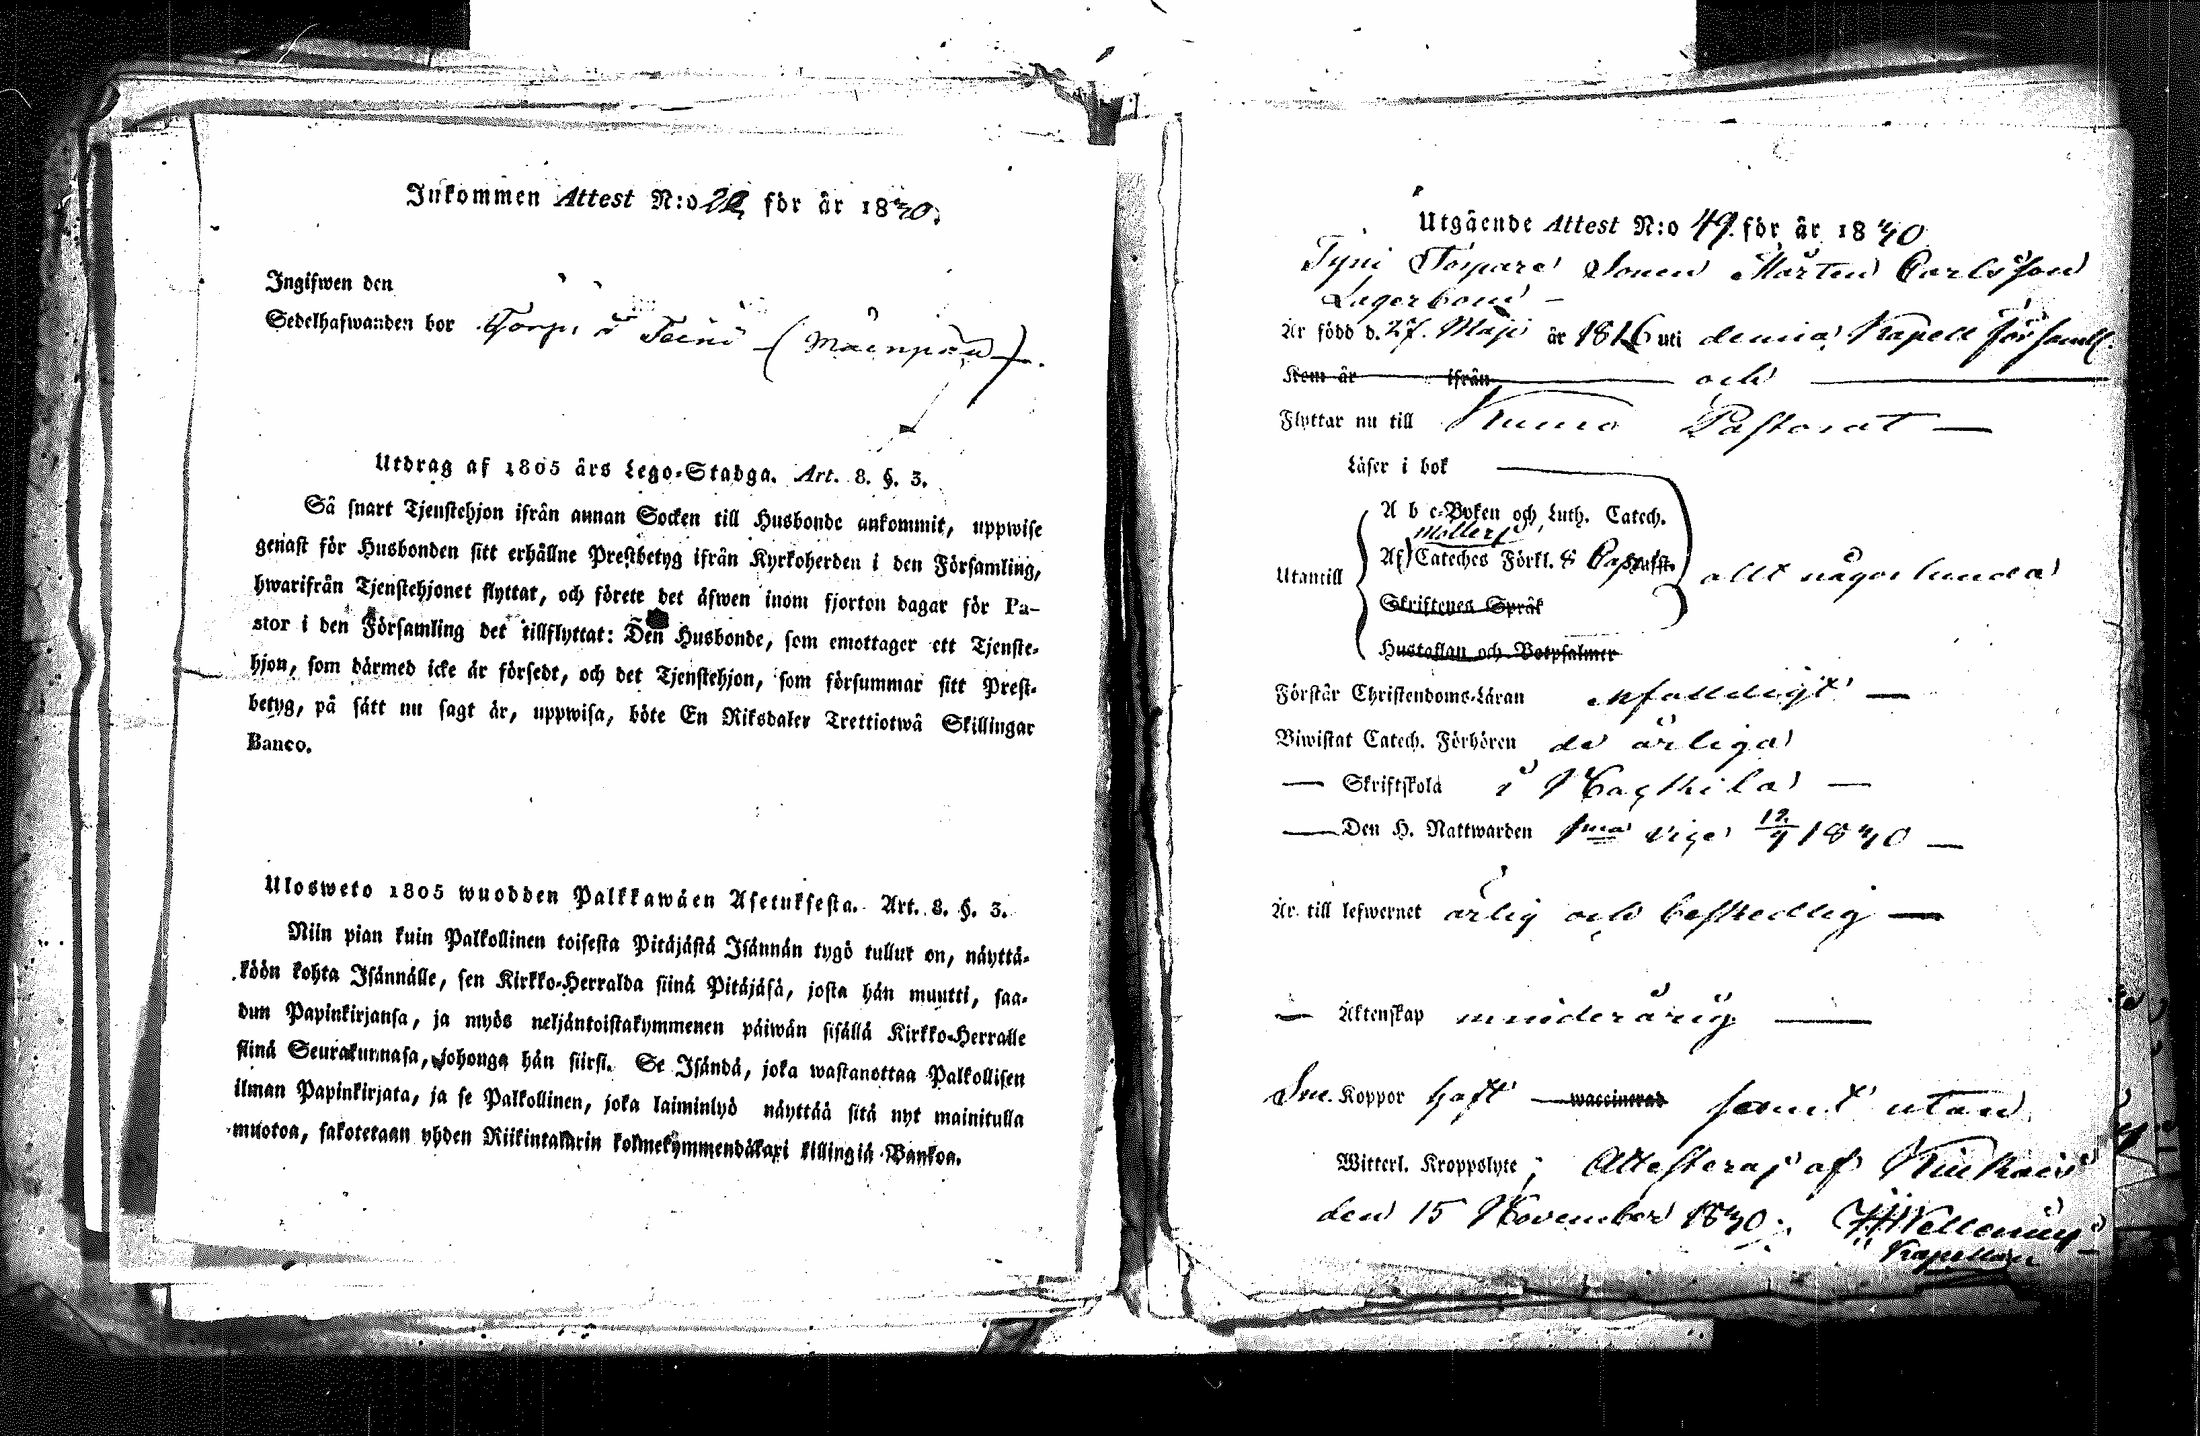 Inkommen Attest N:o 22 för år 1840.
Ingifwen den
Sedelhafwanden bor Torp i
Utdrag af 1805 års Lego-Stadga. Art. 8. §. 3.
Så snart Tjenstehjon ifrån annan Socken till Husbonde ankommit, uppwise
genast för Husbonden sitt erhållne Prestbetyg ifrån Kyrkoherden i den Församling,
hwarifrån Tjenstehjonet flyttat, och förete det äfwen inom fjorton dagar för Pa-
stor i den Församling det tillflyttat: Den Husbonde, som emottager ett Tjenste-
hjon, som därmed icke är försedt, och det Tjenstehjon, som försummar sitt Prest-
betyg, på sätt nu sagt är, uppwisa, böte En Riksdaler Trettiotwå Skillingar
Banco.
Ulosweto 1805 wuodden Palkkawäen Asetuksesta. Art. 8. §. 3.
Niin pian kuin Palkollinen toisesta Pitäjästä Isännän tygö tullut on, näyttä-
köön kohta Isännälle, sen Kirkko-Herralda siinä Pitäjäsä, josta hän muutti, saa-
dun Papinkirjansa, ja myös neljäntoistakymmenen päiwän sisällä Kirkko-Herralle
siinä Seurakunnasa, johonga hän siirsi. Se Isändä, joka wastanottaa Palkollisen
ilman Papinkirjata, ja se Palkollinen, joka laiminlyö näyttää sitä nyt mainitulla
muotoa, sakotetaan yhden Riikintalarin kolmekymmendäkaxi killingiä Bankoa.
Utgående Attest N:o 49. för år 1840
Torpare Sonen Mårten Carlsson
Lagerbom —
Är född d. 27. Maji år 1816 uti denna Kapell Församl.
Kom år ifrån och
Flyttar nu till Kumo Pastorat —
Läser i bok
A b c-Boken och Luth. Catech.
Möllers
Af Cateches Förkl. &
Utantill allt någorlunda
Skriftenes Språk
Hustaflan och Botpsalmer
Förstår Christendoms-Läran enfaldigt —
Biwistat Catech. Förhören de årliga
— Skriftskola i —
— Den H. Nattwarden 1:ma 1840 —
Är till lefwernet ärlig och beskedlig —
— Äktenskap minderårig —
Koppor haft — waccinerad samt utan
Witterl. Kroppslyte; Attesteras af Kiukais
den 15 November 1840.
Kapellan